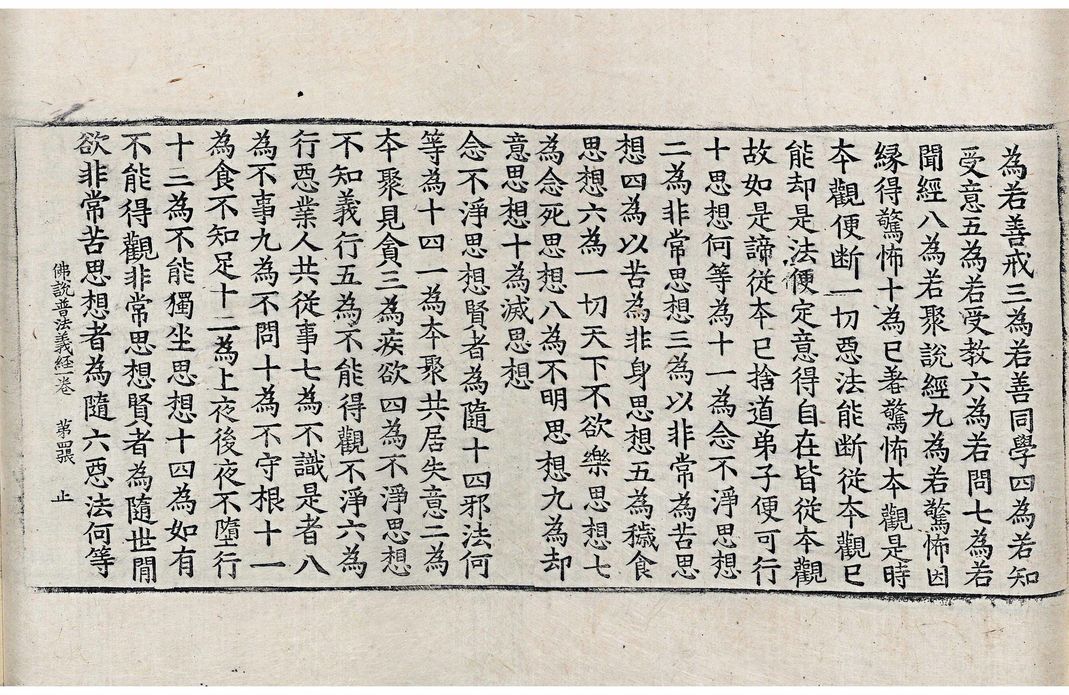 為若善戒三為若善同學四為若知
受意五為若受教六為若問七為若
聞經八為若聚說經九為若驚怖因
緣得驚怖十為已著驚怖本觀是時
本觀便斷一切惡法能斷從本觀已
能却是法便定意得自在皆從本觀
故如是諦從本已捨道弟子便可行
十思想何等為十一為念不淨思想
二為非常思想三為以非常為苦思
想四為以苦為非身思想五為穢食
思想六為一切天下不欲樂思想七
為念死思想八為不明思想九為却
意思想十為滅思想
念不淨思想賢者為隨十四邪法何
等為十四一為本聚共居失意二為
本聚見貪三為疾欲四為不淨思想
不知義行五為不能得觀不淨六為
行惡業人共從事七為不識是者八
為不事九為不問十為不守根十一
為食不知足十二為上夜後夜不墮行
十三為不能獨坐思想十四為如有
不能得觀非常思想賢者為隨世閒
欲非常苦思想者為隨六惡法何等
佛說普法義經一卷 第四張 止